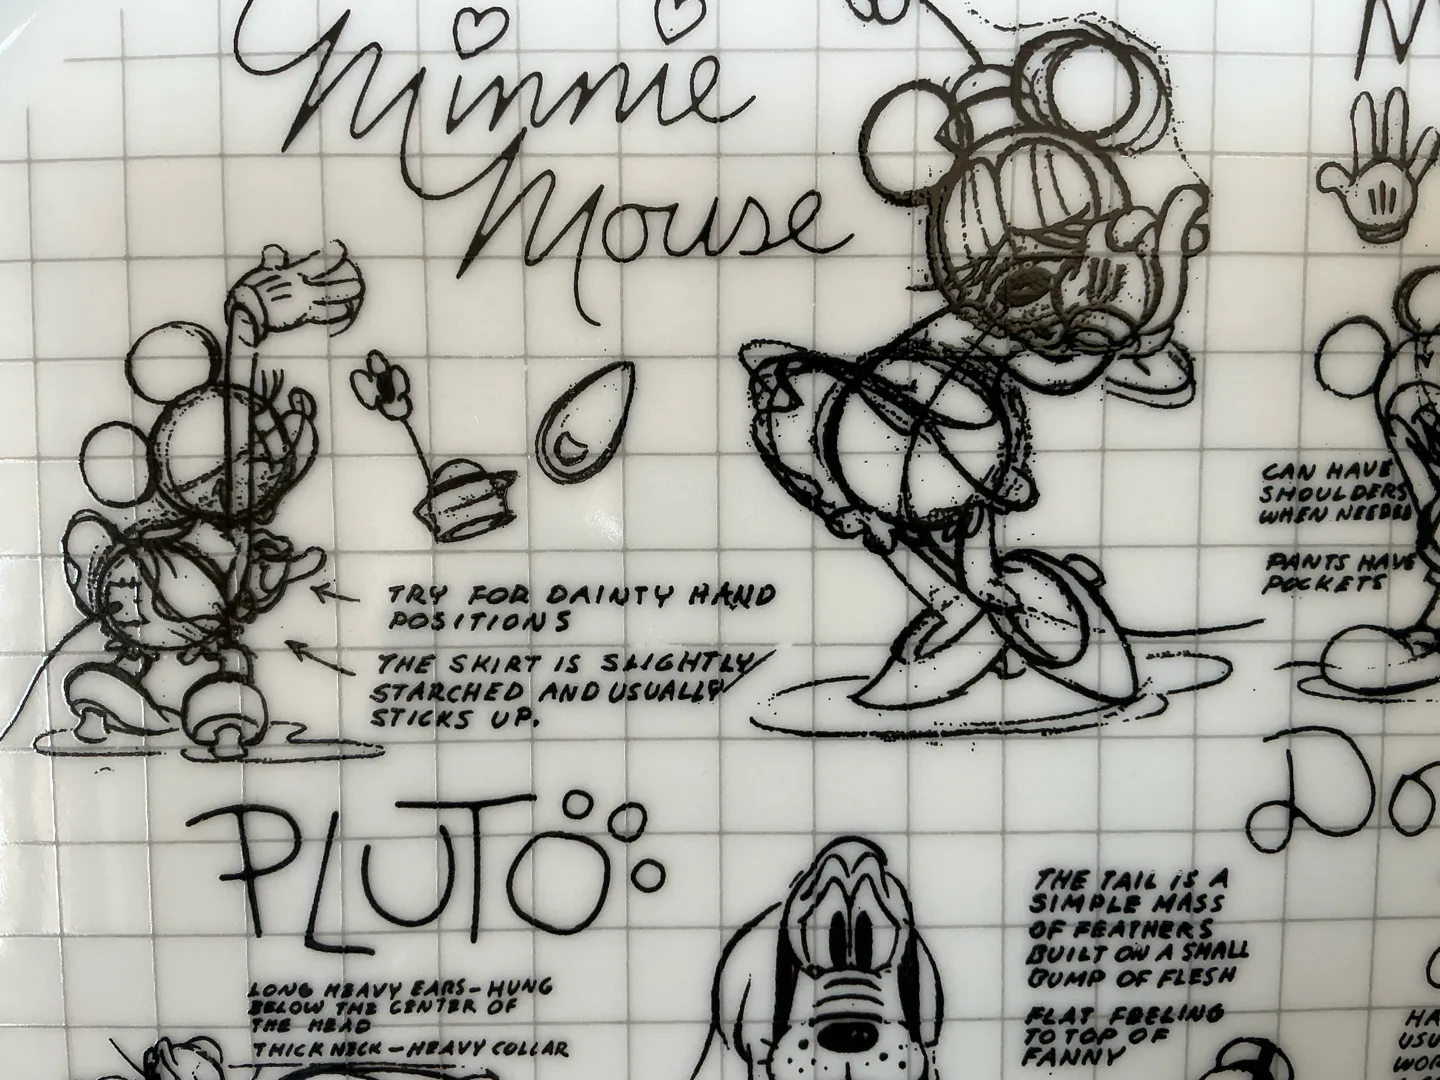 Minnie
Mouse
TRY FOR DAINTY HAND
POSITIONS
THE SKIRT IS SLIGHTLY
STARCHED AND USUALLY
STICKS UP.
CAN HAVE
SHOULDERS
WHEN NEEDED
PANTS HAVE
POCKETS
PLUTO
LONG HEAVY EARS - HUNG
BELOW THE CENTER OF
THE HEAD
THICK NECK - HEAVY COLLAR
THE TAIL IS A
SIMPLE MASS
OF FEATHERS
BUILT ON A SMALL
BUMP OF FLESH
FLAT FEELING
TO TOP OF
FANNY